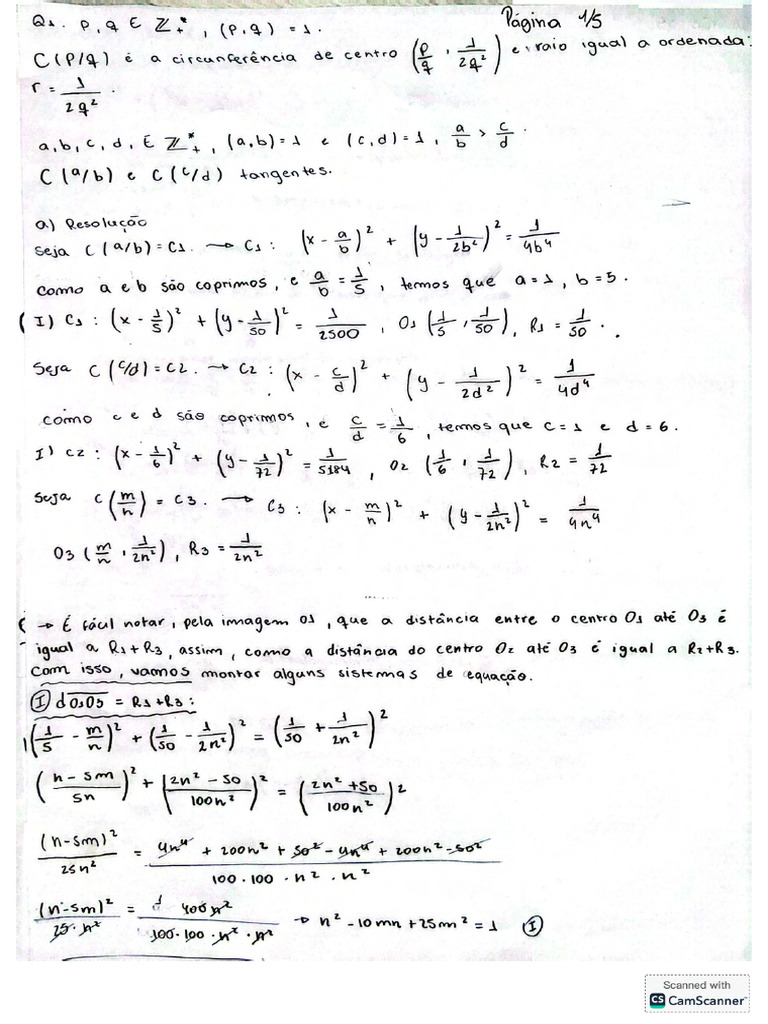 Página 1/5
Q1. p, q ∈ ℤ*₊, (p,q) = 1.
C(p/q) é a circunferência de centro (p/q, 1/2q²) e raio igual a ordenada:
r = 1/2q².
a, b, c, d, ∈ ℤ*₊, (a,b)=1 e (c,d)=1, a/b > c/d.
C(a/b) e C(c/d) tangentes.
a) Resolução
Seja C(a/b) = C1. → C1: (x - a/b)² + (y - 1/2b²)² = 1/4b⁴
Como a e b são coprimos, e a/b = 1/5, termos que a=1, b=5.
(I) C1: (x - 1/5)² + (y - 1/50)² = 1/2500, O1 (1/5, 1/50), R1 = 1/50.
Seja C(c/d) = C2. → C2: (x - c/d)² + (y - 1/2d²)² = 1/4d⁴
como c e d são coprimos, e c/d = 1/6, termos que c=1 e d=6.
I) C2: (x - 1/6)² + (y - 1/72)² = 1/5184, O2 (1/6, 1/72), R2 = 1/72
Seja C(m/n) = C3. → C3: (x - m/n)² + (y - 1/2n²)² = 1/4n⁴
O3 (m/n, 1/2n²), R3 = 1/2n²
→ É fácil notar, pela imagem 01, que a distância entre o centro O1 até O3 é
igual a R1+R3, assim, como a distância do centro O2 até O3 é igual a R2+R3.
Com isso, vamos montar alguns sistemas de equação.
(I) dO1O3 = R1+R3:
(1/5 - m/n)² + (1/50 - 1/2n²)² = (1/50 + 1/2n²)²
((n-5m)/5n)² + ((2n² - 50)/100n²)² = ((2n² + 50)/100n²)²
(n-5m)²/25n² = (4n⁴ + 200n² + 50² - 4n⁴ + 200n² - 50²)/(100·100·n²·n²)
(n-5m)²/(25·n²) = 1 400n²/(100·100·n²·n²) → n² - 10mn + 25m² = 1 (I)
Scanned with
CS CamScanner